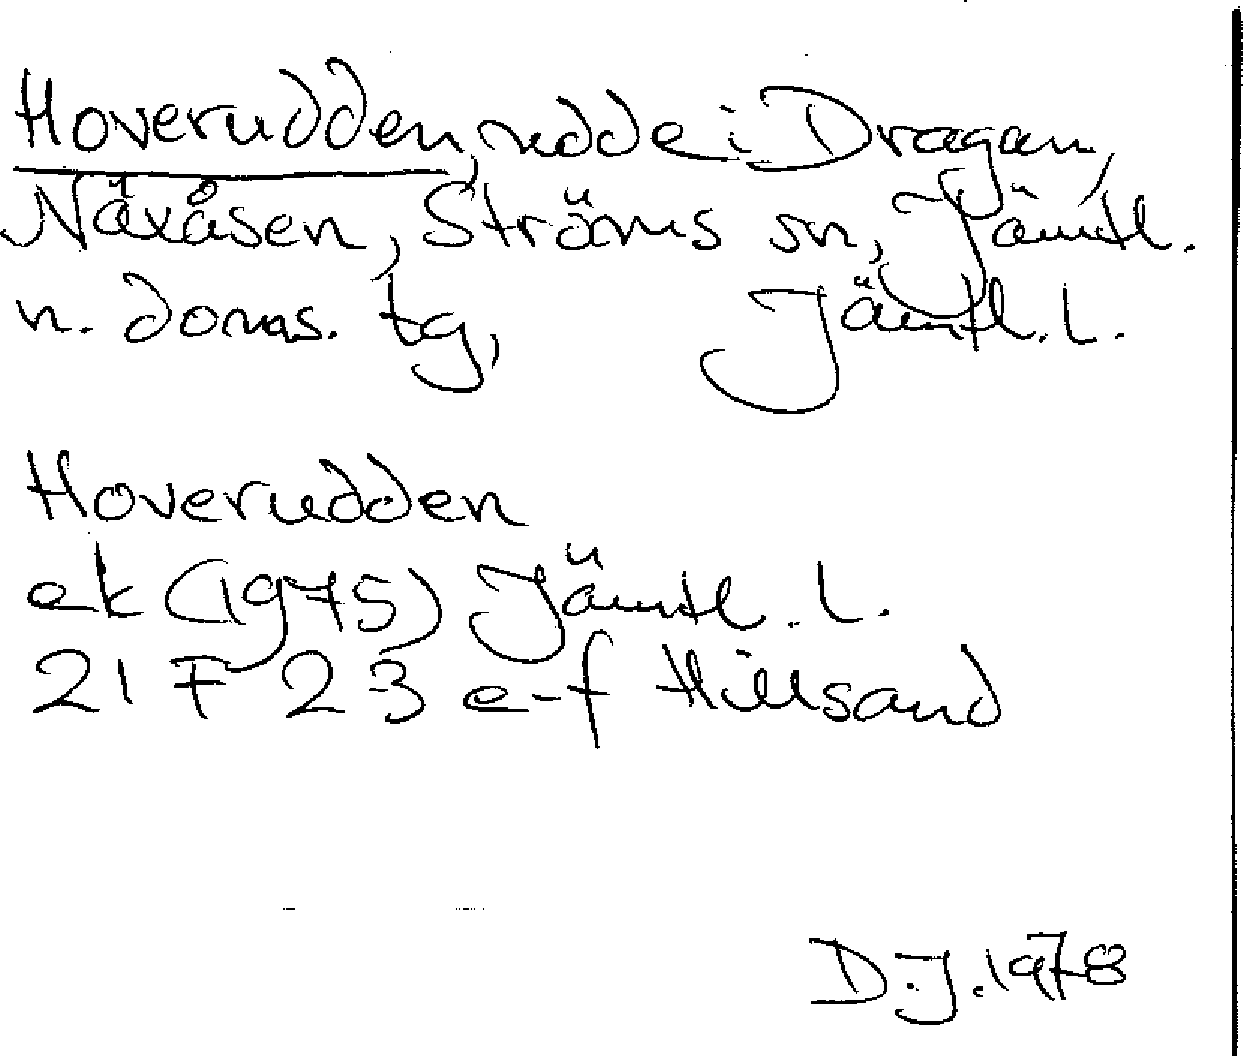 Hoverudden, udde i Dragan,
Näxåsen, Ströms sn, Jämtl.
n. doms. tg, Jämtl. l.
Hoverudden
ek (1975) Jämtl. l.
21 F 2 3 e-f Hillsand
D.J. 1978